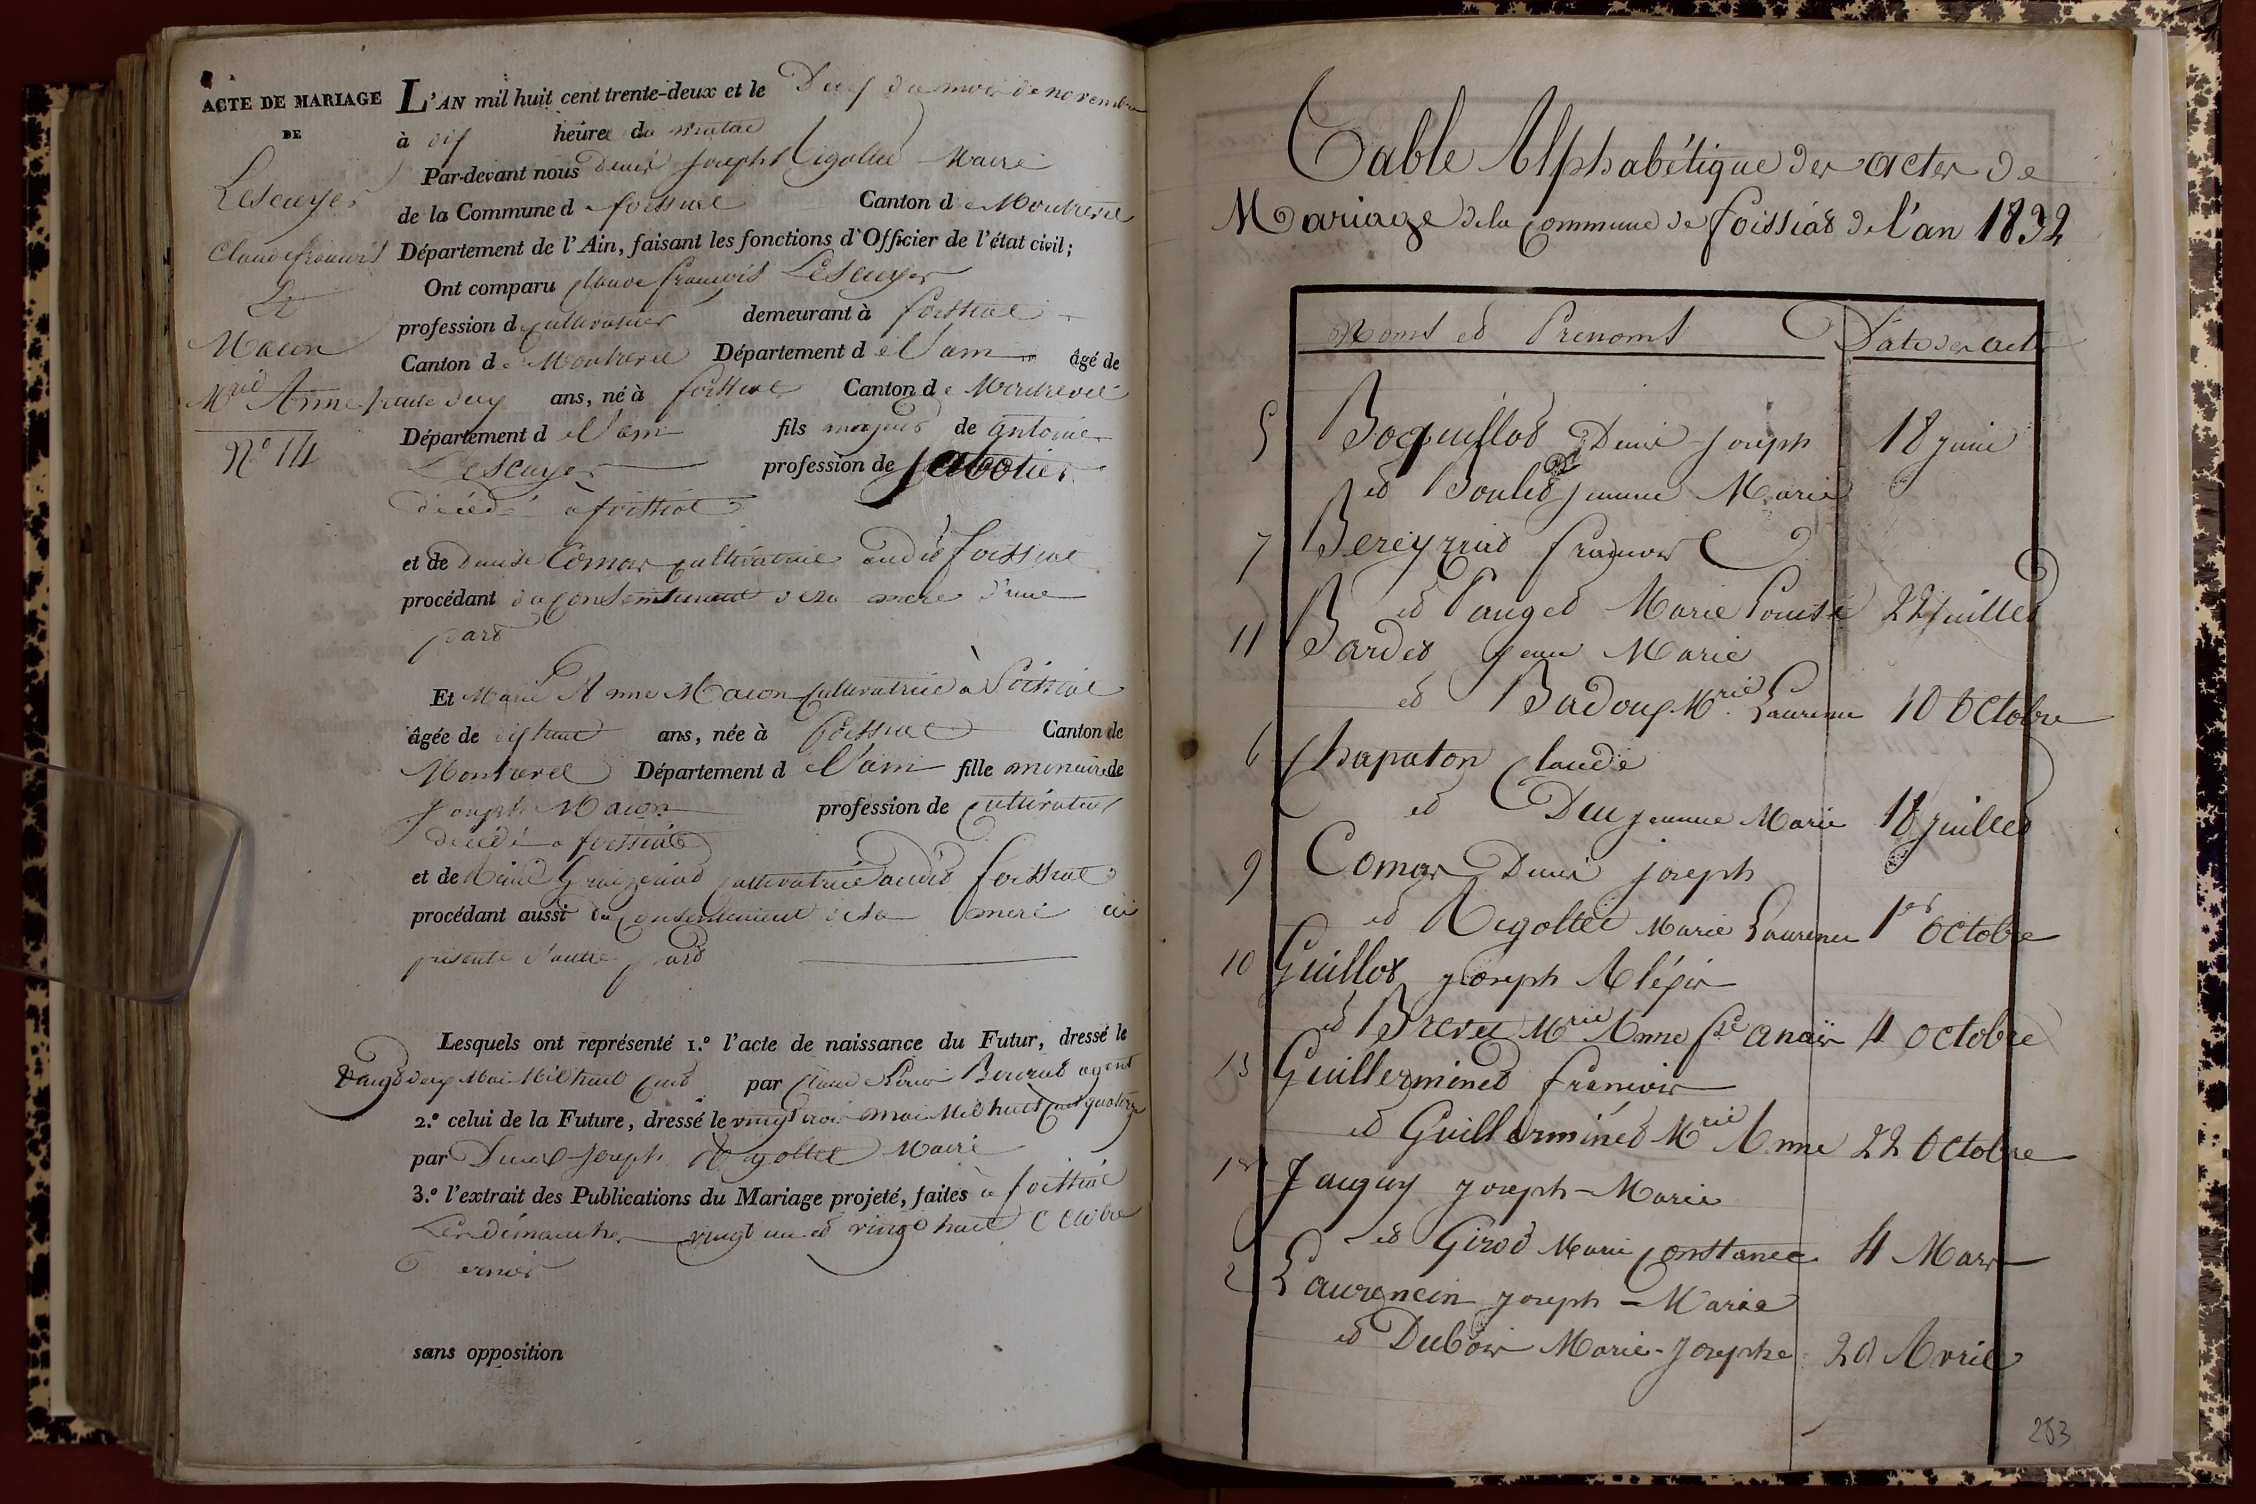 ACTE DE MARIAGE
DE
Lescuyer
Claude françois
Et
Macon
Mrie Anne
No 14
L'AN mil huit cent trente-deux et le Deux du mois de novembre
à dix heure du matin
Par-devant nous Denis Joseph Rigollet Maire
de la Commune d e foissiat Canton d e Montrevel
Département de l'Ain, faisant les fonctions d'Officier de l'état civil;
Ont comparu Claude françois Lescuyer
profession d cultivateur demeurant à foissiat
Canton d e Montrevel Département d e l'ain âgé de
trente deux ans, né à foissiat Canton d e Montrevel
Département d e l'ain fils majeur de antoine
Lescuyer profession de sabotier
décédé à foissiat
et de Denise Comas cultivatrice audit foissiat
procédant du consentement de sa mere d'une
part
Et Marie Anne Macon cultivatrice à foissiat
âgée de dix huit ans, née à foissiat Canton de
Montrevel Département d e l'ain fille mineure de
Joseph Macon profession de cultivateur
décédé a foissiat
et de Marie cultivatrice audit foissiat
procédant aussi du consentement de sa mere ici
présente d'autre part
Lesquels ont représenté 1.º l'acte de naissance du Futur, dressé le
vingt deux Mai Mil huit cent par Claude agent
2.º celui de la Future, dressé le vingt trois mai Mil huit cent quatorze
par Denis Joseph Rigollet Maire
3.º l'extrait des Publications du Mariage projeté, faites à foissiat
Les dimanches vingt un et vingt huit Octobre
Dernier
sans opposition
Table Alphabétique des actes de
Mariage de la Commune de foissiat de l'an 1832
Noms et Prénoms Date des acte
5 Boquillot Denis Joseph 18 juin
et Boulet jeanne Marie
7 Bereyziat françois
et Pauget Marie Louise 22 juillet
11 Bardet Jean Marie
et Badoux Mrie Laurence 10 Octobre
6 Chapaton Claude
et Duc jeanne Marie 18 juillet
9 Comas Denis joseph
et Rigollet Marie Laurence 1er Octobre
10 Guillot joseph Alexis
et Brevet Mrie Anne fse anaïs 4 Octobre
13 Guillerminet françois
et Guillerminet Mrie Anne 22 Octobre
1er Jauguy joseph-Marie
et Girod Marie Constance 4 Mars
2 Laurencin joseph-Marie
et Dubois Marie-josephe 20 Avril
283